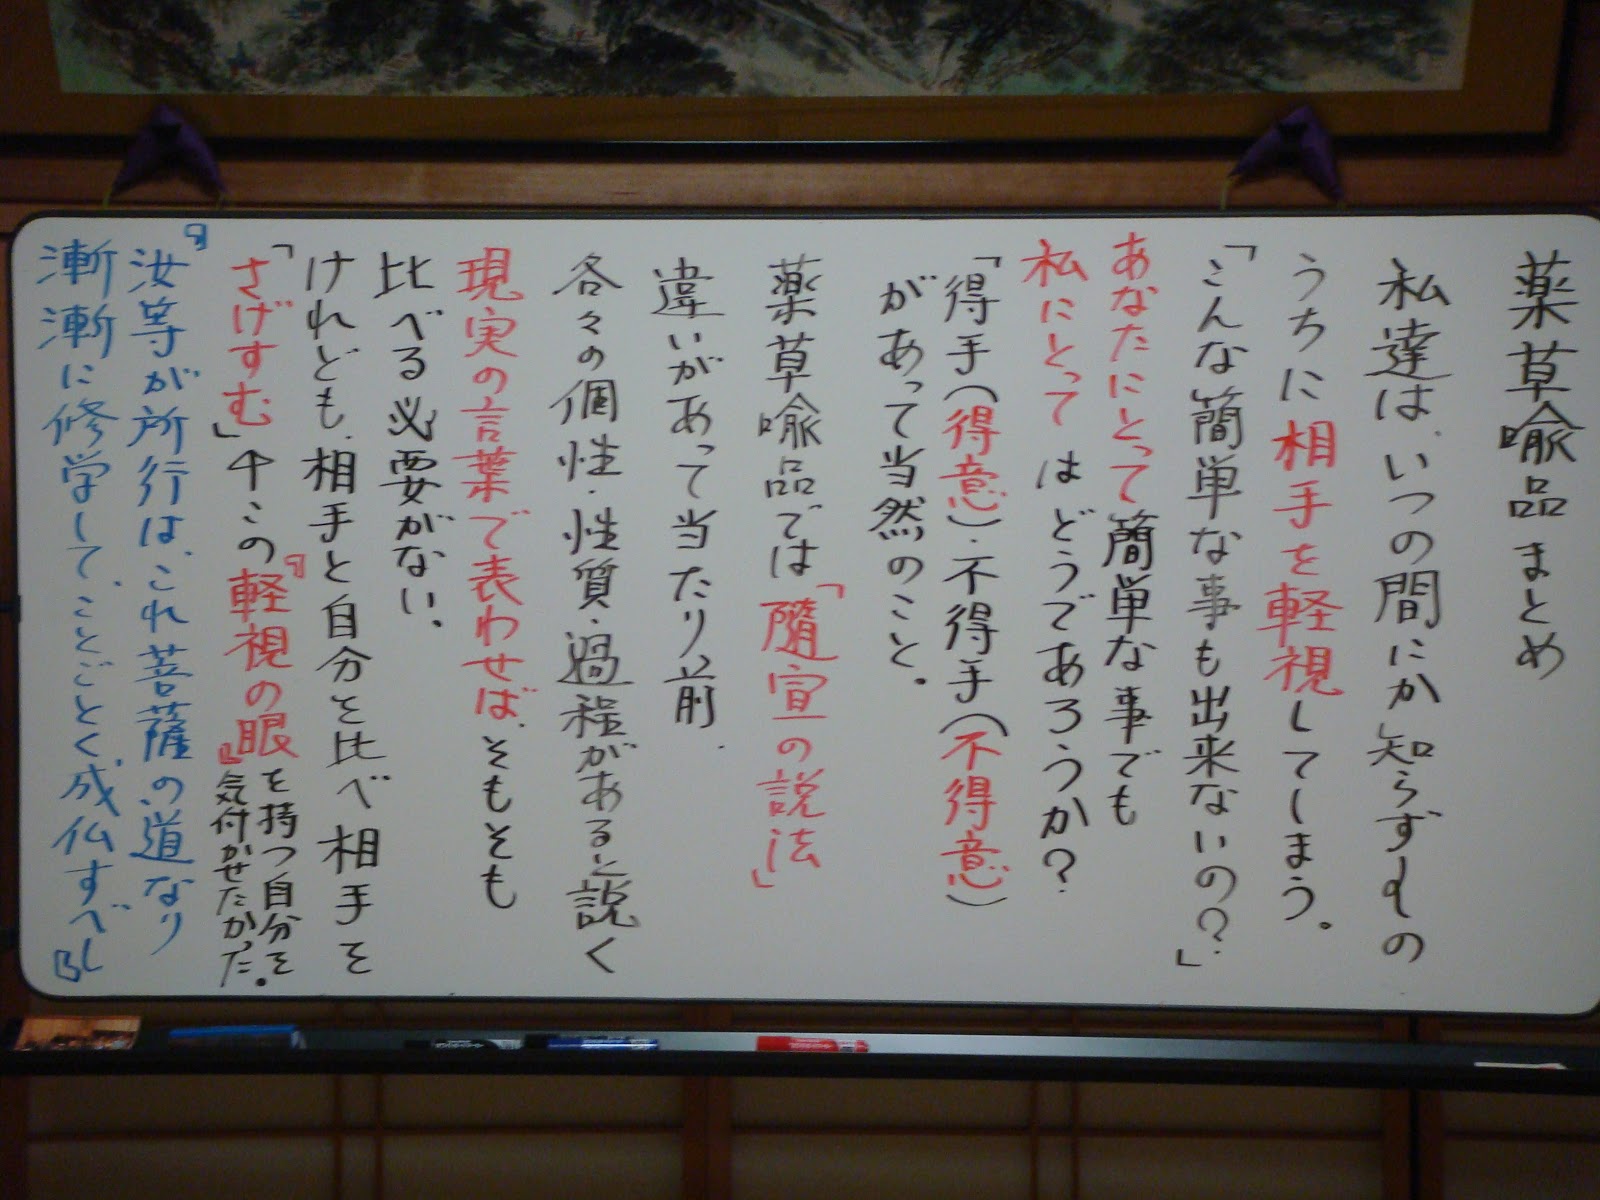 薬草喩品まとめ
私達は、いつの間にか知らずしの
うちに相手を軽視してしまう。
「こんな簡単な事も出来ないの?」
あなたにとって簡単な事でも
私にとってはどうであろうか?
「得手(得意)・不得手(不得意)
があって当然のこと。
薬草喩品では「随宜の説法」
違いがあって当たり前.
各々の個性・性質・過程があると説く
現実の言葉で表わせば、そもそも
比べる必要がない.
けれども、相手と自分を比べ相手を
「さげすむ」←この『軽視の眼』を持つ自分を
気付かせたかった。
『汝等が所行は、これ菩薩の道なり
漸漸に修学して、ことごとく、成仏すべし』